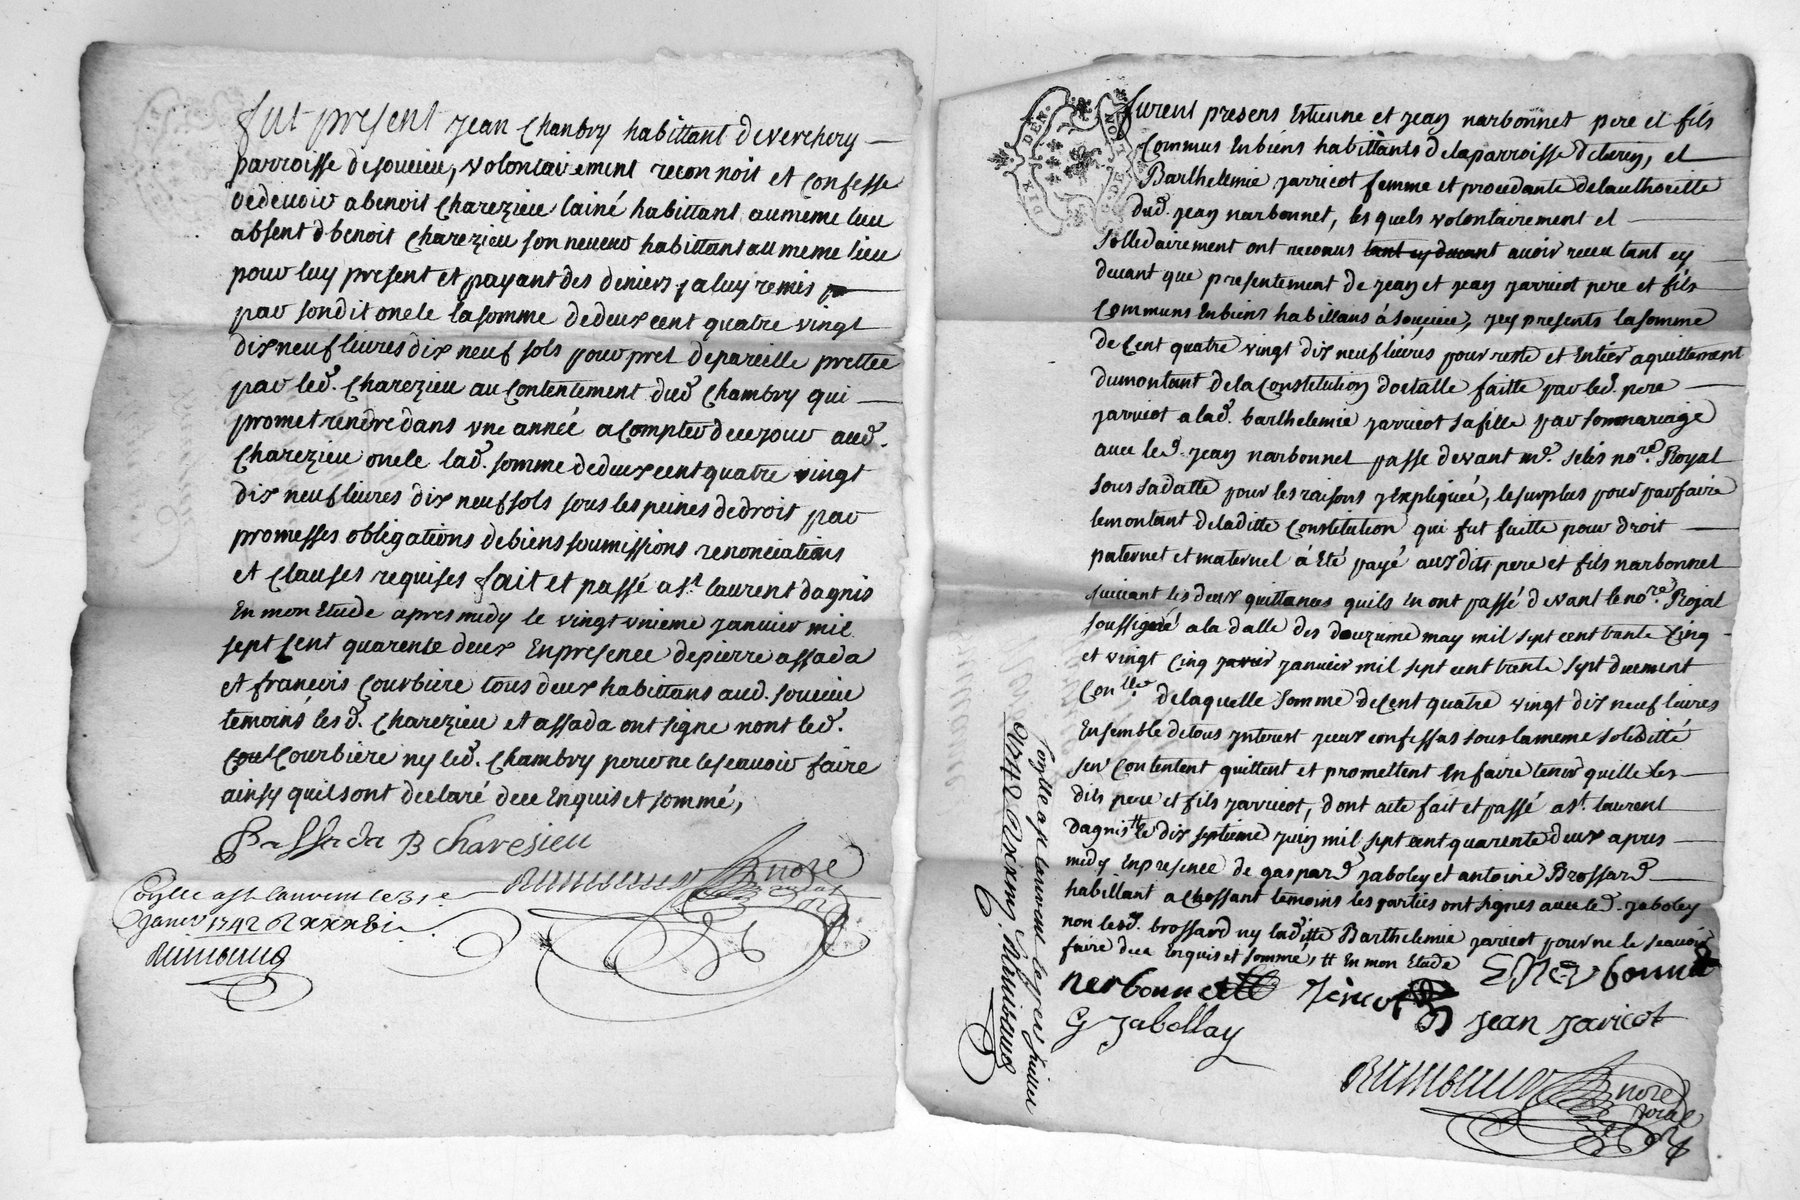 fut present jean Chanbry habittant deverchery
parroisse desoucieu, volontairement reconnoit et confesse
dedevoir abenoit Charezieu lainé habittant aumeme lieu
absent dbenoit Charezieu son neuveu habittant au meme lieu
pour luy present et payant des deniers jaluy remis
par sondit oncle lasomme dedeux cent quatre vingt
dix neuf livres dix neuf sols pour pret depareille prettée
par led. Charezieu au Contentement dud Chambry qui
promet rendre dans une année a Compter decejour aud.
Charezieu oncle lad. somme dedeux cent quatre vingt
dix neuf livres dix neuf sols sous les peines dedroit par
promesses obligations debiens soumissions renonciations
et clauses requises fait et passé a st laurent dagnis
En mon Etude apres midy le vingt unieme janvier mil
sept Cent quarente deux En presence depierre assada
et francois Courbiere tous deux habittans aud. soucieu
temoins les d. Charezieu et assada ont signe nont led.
Cou Courbiere ny led. Chambry pour ne lescavoir faire
ainsy quilsont declaré dece Enquis et sommé,
P assada B Charesieu
notre
Controllé a st Laurent le 31e
Janer 1742
DIX DEN. G. DE LION
furent presens Estienne et jean narbonnet pere et fils
Commus Enbiens habittants de la parroisse de
Barthelemie jarricot femme et procedante delauthoritte
dud. jean narbonnet, les quels volontairement et
sollidairement ont reconus tant cy devant avoir receu tant cy
devant que presentement de jean et jean jarricot pere et fils
Communs Enbiens habittans à Soucieu, jcy presents lasomme
de Cent quatre vingt dix neuf livres pour reste et Entier aquittement
dumontant dela Constitution doctalle faitte par led. pere
jarricot a lad. barthelemie jarricot safille par sonmariage
avec led. jean narbonnet passe devant me. nore. Royal
sous sadatte pour les raisons y Expliqueé, lesurplus pour parfaire
lemontant deladitte Constitution qui fut faitte pour droit
paternet et maternel à Eté payé auxdits pere et fils narbonnet
suivant les deux quittances quils En ont passé devant lenore. Royal
soussigné ala datte des douzieme may mil sept cent trante Cinq
et vingt Cinq janvier mil sept cent trante sept duement
Conllé delaquelle somme deCent quatre vingt dix neuf livres
Ensemble detous jnterest jceux confessas sous lameme soliditté
sen Contentent quittent et promettent En faire tenir quitte les
dits pere et fils jarricot, dont acte fait et passé a st. laurent
dagnis tt le dix septieme juin mil sept cent quarente deux apres
midy En presence de gaspard jaboley et antoine Brossard
habittant a Chossant temoins les parties ont signes avec led. jaboley
non led. brossard ny laditte Barthelemie jaricot pour ne le scavoir
faire dece Enquis et sommé, tt En mon Etude
nerbonnet
jean jaricot
G jabollay
notre
royal